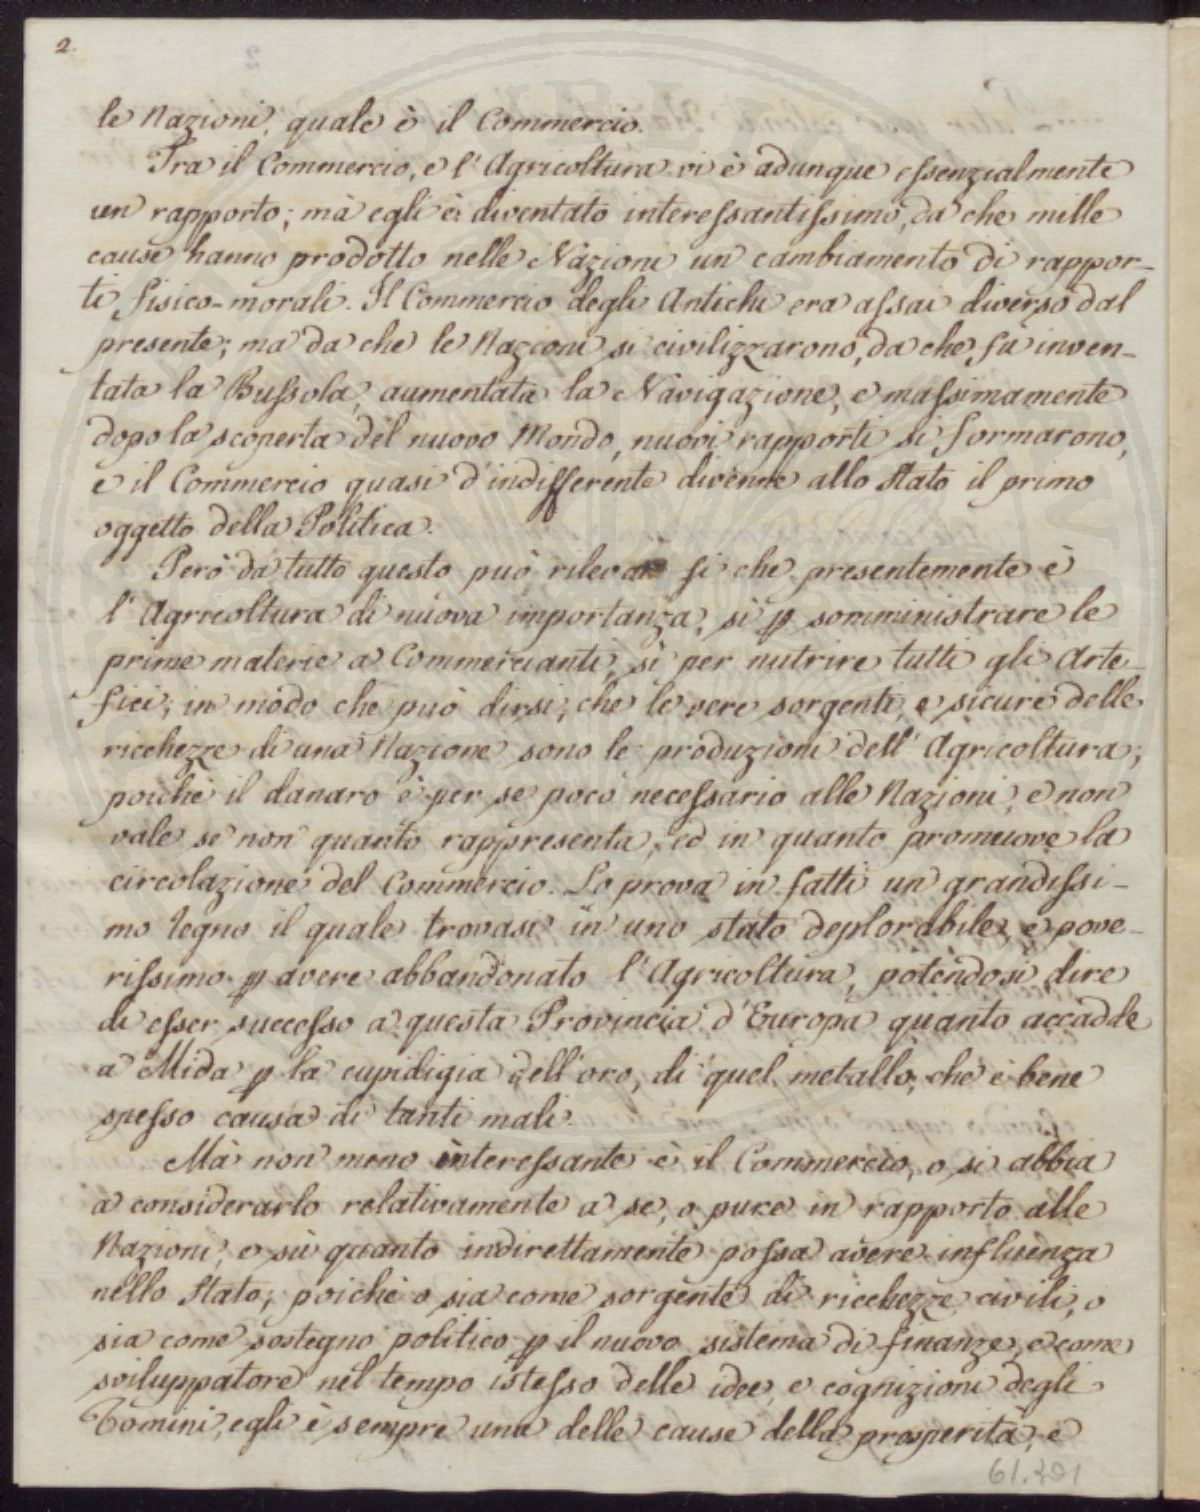 2.
le Nazioni, quale è il Commercio.
Tra il Commercio, e l'Agricoltura vi è adunque essenzialmente
un rapporto; mà egli è diventato interessantissimo, da che mille
cause hanno prodotto nelle Nazioni un cambiamento di rappor-
ti fisico-morali. Il Commercio degli Antichi era assai diverso dal
presente; ma da che le Nazioni si civilizzarono, da che fu inven-
tata la Bussola, aumentata la Navigazione, e massimamente
dopo la scoperta del nuovo Mondo, nuovi rapporti si formarono,
e il Commercio quasi d'indifferente divenne allo Stato il primo
oggetto della Politica.
Però da tutto questo può rilevar si che presentemente è
l'Agricoltura di nuova importanza, sì p somministrare le
prime materie a Commercianti, sì per nutrire tutti gli Arte-
fici; in modo che può dirsi, che le vere sorgenti, e sicure delle
ricchezze di una Nazione sono le produzioni dell'Agricoltura;
poichè il danaro è per se poco necessario alle Nazioni, e non
vale se non quanto rappresenta, ed in quanto promuove la
circolazione del Commercio. Lo prova in fatti un grandissi-
mo Regno il quale trovasi in uno stato deplorabile, e pove-
rissimo p avere abbandonato l'Agricoltura, potendosi dire
di esser successo a questa Provincia d'Europa quanto accadde
a Mida p la cupidigia dell'oro, di quel metallo, che è bene
spesso causa di tanti mali.
Mà non meno interessante è il Commercio, o si abbia
a considerarlo relativamente a se, o pure in rapporto alle
Nazioni, e sù quanto indirettamente possa avere influenza
nello Stato; poichè o sia come sorgente di ricchezze civili, o
sia come sostegno politico p il nuovo sistema di finanze, e come
sviluppatore nel tempo istesso delle idee, e cognizioni degli
Uomini, egli è sempre una delle cause della prosperità, e